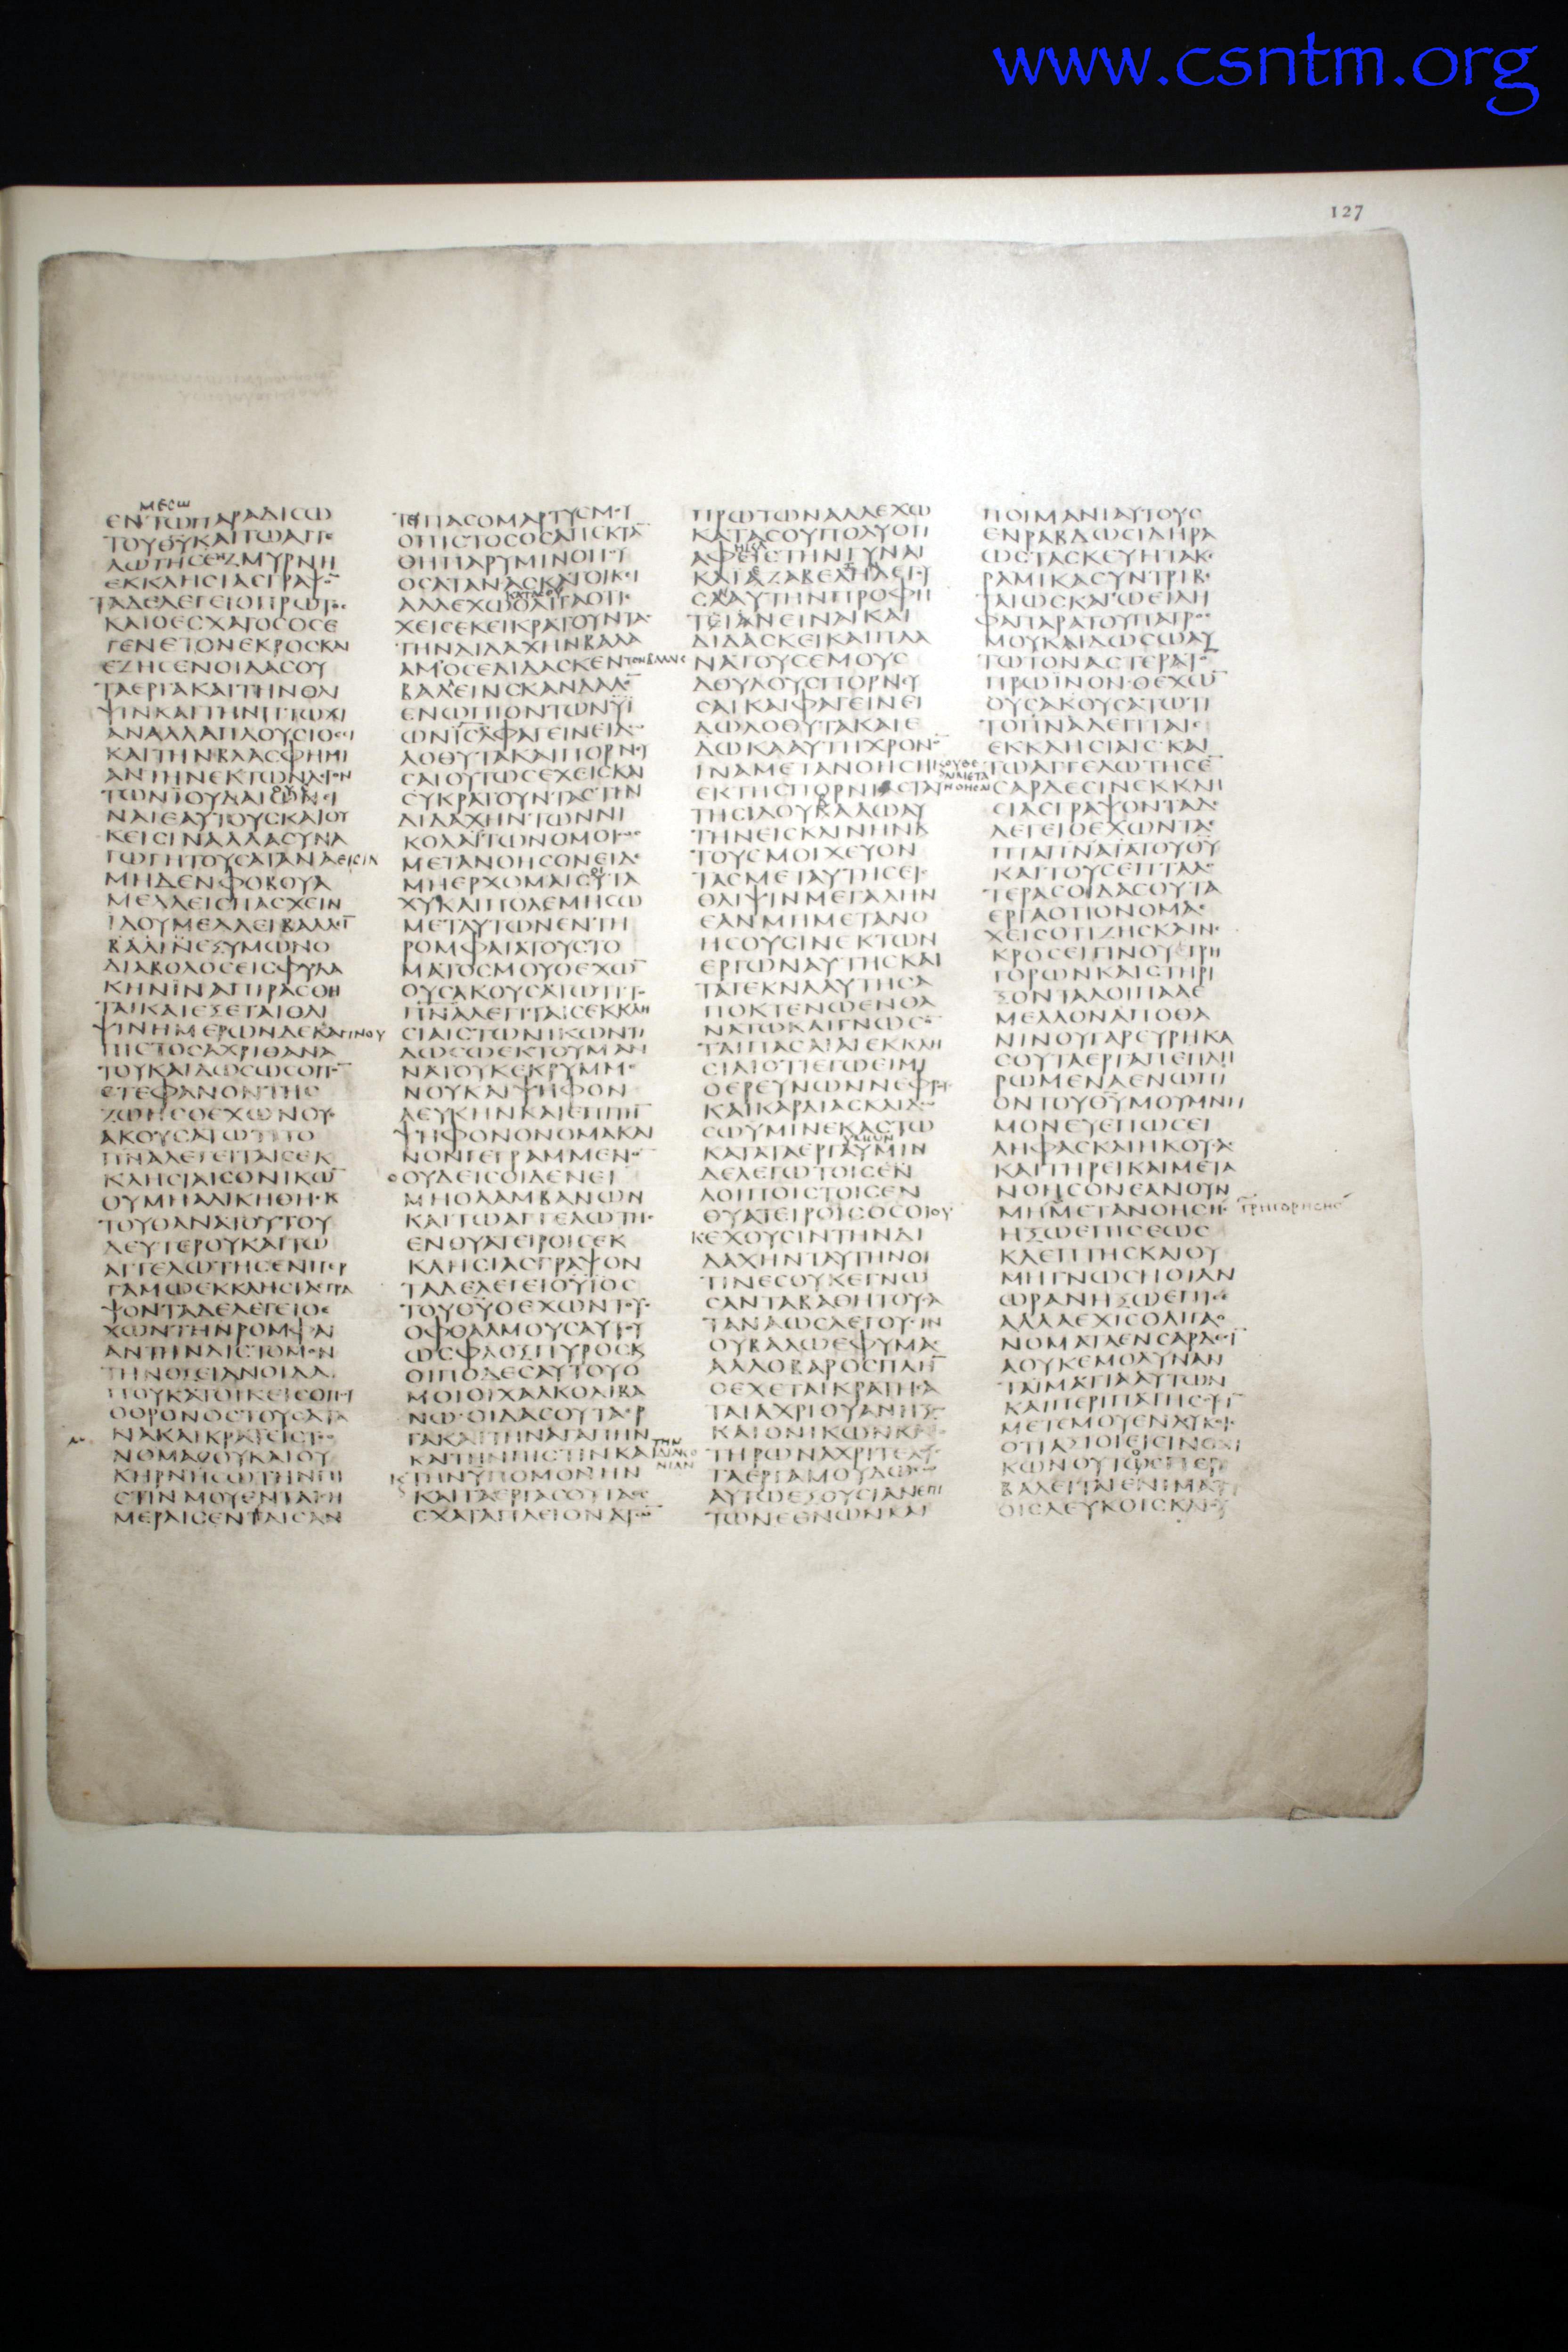 www.csntm.org
127
ΜΕϹΩ
ΕΝΤΩΠΑΡΑΔΙϹΩ
ΤΟΥΘΥΚΑΙΤΩΑΓΓΕ
ΛΩΤΗϹΕΝΖΜΥΡΝΗ
ΕΚΚΛΗϹΙΑϹΓΡΑΨΟ̅
ΤΑΔΕΛΕΓΕΙΟΠΡΩΤΟϹ
ΚΑΙΟΕϹΧΑΤΟϹΟϹΕ
ΓΕΝΕΤΟΝΕΚΡΟϹΚΑΙ
ΕΖΗϹΕΝΟΙΔΑϹΟΥ
ΤΑΕΡΓΑΚΑΙΤΗΝΘΛΙ
ΨΙΝΚΑΙΤΗΝΠΤΩΧΙ
ΑΝΑΛΛΑΠΛΟΥϹΙΟϹΕΙ
ΚΑΙΤΗΝΒΛΑϹΦΗΜΙ
ΑΝΤΗΝΕΚΤΩΝΛΕΓΟΝ
ΤΩΝΪΟΥΔΑΙΩΝΕΙ
ΝΑΙΕΑΥΤΟΥϹΚΑΙΟΥ
ΚΕΙϹΙΝΑΛΛΑϹΥΝΑ
ΓΩΓΗΤΟΥϹΑΤΑΝΑΕΙϹΙΝ
ΜΗΔΕΝΦΟΒΟΥΑ
ΜΕΛΛΕΙϹΠΑϹΧΕΙΝ
ΙΔΟΥΜΕΛΛΕΙΒΑΛΛΙ̅
ΒΑΛΙΝΕΞΥΜΩΝΟ
ΔΙΑΒΟΛΟϹΕΙϹΦΥΛΑ
ΚΗΝΪΝΑΠΙΡΑϹΘΗ
ΤΑΙΚΑΙΕΞΕΤΑΙΘΛΙ
ΨΙΝΗΜΕΡΩΝΔΕΚΑΓΙΝΟΥ
ΠΙϹΤΟϹΑΧΡΙΘΑΝΑ
ΤΟΥΚΑΙΔΩϹΩϹΟΙΤΟ̅
ϹΤΕΦΑΝΟΝΤΗϹ
ΖΩΗϹΟΕΧΩΝΟΥϹ
ΑΚΟΥϹΑΤΩΤΙΤΟ
ΠΝΑΛΕΓΕΙΤΑΙϹΕΚ
ΚΛΗϹΙΑΙϹΟΝΙΚΩ̅
ΟΥΜΗΑΔΙΚΗΘΗΕΚ
ΤΟΥΘΑΝΑΤΟΥΤΟΥ
ΔΕΥΤΕΡΟΥΚΑΙΤΩ
ΑΓΓΕΛΩΤΗϹΕΝΠΕΡ
ΓΑΜΩΕΚΚΛΗϹΙΑϹΓΡΑ
ΨΟΝΤΑΔΕΛΕΓΕΙΟΕ
ΧΩΝΤΗΝΡΟΜΦΑΙ
ΑΝΤΗΝΔΙϹΤΟΜΟΝ
ΤΗΝΟΞΕΙΑΝΟΙΔΑ
ΠΟΥΚΑΤΟΙΚΕΙϹΟΠΟΥ
ΟΘΡΟΝΟϹΤΟΥϹΑΤΑ
ΝΑΚΑΙΚΡΑΤΕΙϹΤΟΟ
ΝΟΜΑΜΟΥΚΑΙΟΥ
ΚΗΡΝΗϹΩΤΗΝΠΙ
ϹΤΙΝΜΟΥΕΝΤΑΙϹΗ
ΜΕΡΑΙϹΕΝΤΑΙϹΑΝ
ΤΕΙΠΑϹΟΜΑΡΤΥϹΜΟΥ
ΟΠΙϹΤΟϹΟϹΑΠΕΚΤΑ̅
ΘΗΠΑΡΥΜΙΝΟΠΟΥ
ΟϹΑΤΑΝΑϹΚΑΤΟΙΚΕΙ
ΚΑΤΑϹΟΥ
ΑΛΛΕΧΩΟΛΙΓΑΟΤΙΕ
ΧΕΙϹΕΚΕΙΚΡΑΤΟΥΝΤΑϹ
ΤΗΝΔΙΔΑΧΗΝΒΑΛΑ
ΑΜΟϹΕΔΙΔΑϹΚΕΝΤΟΝΒΑΛΑΚ
ΒΑΛΕΙΝϹΚΑΝΔΑΛΟ̅
ΕΝΩΠΙΟΝΤΩΝΥΪ
ΩΝΙϹΛΦΑΓΕΙΝΕΙΔΩ
ΛΟΘΥΤΑΚΑΙΠΟΡΝΕΥ
ϹΑΙΟΥΤΩϹΕΧΕΙϹΚΑΙ
ϹΥΚΡΑΤΟΥΝΤΑϹΤΗΝ
ΔΙΔΑΧΗΝΤΩΝΝΙ
ΚΟΛΑΪΤΩΝΟΜΟΙΩϹ
ΜΕΤΑΝΟΗϹΟΝΕΙΔΕ
ΜΗΕΡΧΟΜΑΙϹΟΙΤΑ
ΧΥΚΑΙΠΟΛΕΜΗϹΩ
ΜΕΤΑΥΤΩΝΕΝΤΗ
ΡΟΜΦΑΙΑΤΟΥϹΤΟ
ΜΑΤΟϹΜΟΥΟΕΧΩ̅
ΟΥϹΑΚΟΥϹΑΤΩΤΙΤΟ
ΠΝΑΛΕΓΙΤΑΙϹΕΚΚΛΗ
ϹΙΑΙϹΤΩΝΙΚΩΝΤΙ
ΔΩϹΩΕΚΤΟΥΜΑΝ
ΝΑΤΟΥΚΕΚΡΥΜΜΕ
ΝΟΥΚΑΙΨΗΦΟΝ
ΛΕΥΚΗΝΚΑΙΕΠΙΤΗ̅
ΨΗΦΟΝΟΝΟΜΑΚΑΙ
ΝΟΝΓΕΓΡΑΜΜΕΝΟ̅
ΟΥΔΕΙϹΟΙΔΕΝΕΙ
ΜΗΟΛΑΜΒΑΝΩΝ
ΚΑΙΤΩΑΓΓΕΛΩΤΗϹ
ΕΝΘΥΑΤΕΙΡΟΙϹΕΚ
ΚΛΗϹΙΑϹΓΡΑΨΟΝ
ΤΑΔΕΛΕΓΕΙΟΥΪΟϹ
ΤΟΥΘΥΟΕΧΩΝΤΟΥϹ
ΟΦΘΑΛΜΟΥϹΑΥΤΟΥ
ΩϹΦΛΟΞΠΥΡΟϹΚ
ΟΙΠΟΔΕϹΑΥΤΟΥΟ
ΜΟΙΟΙΧΑΛΚΟΛΙΒΑ
ΝΩ·ΟΙΔΑϹΟΥΤΑΕΡ
ΓΑΚΑΙΤΗΝΑΓΑΠΗΝ
ΚΑΙΤΗΝΠΙϹΤΙΝΚΑΙΤΗΝΔΙΑΚΟΝΙΑΝ
ΤΗΝΫΠΟΜΟΝΗΝ
ΚΑΙΤΑΕΡΓΑϹΟΥΤΑΕ
ϹΧΑΤΑΠΛΕΙΟΝΑΤΩ̅
ΠΡΩΤΩΝΑΛΛΕΧΩ
ΚΑΤΑϹΟΥΠΟΛΥΟΤΙ
ΑΦΕΙϹΤΗΝΓΥΝΑΙ
ΚΑΙΑΖΑΒΕΛΗΛΕΓΟΥ
ϹΑΑΥΤΗΝΠΡΟΦΗ
ΤΕΙΑΝΕΙΝΑΙΚΑΙ
ΔΙΔΑϹΚΕΙΚΑΙΠΛΑ
ΝΑΤΟΥϹΕΜΟΥϹ
ΔΟΥΛΟΥϹΠΟΡΝΕΥ
ϹΑΙΚΑΙΦΑΓΕΙΝΕΙ
ΔΩΛΟΘΥΤΑΚΑΙΕ
ΔΩΚΑΑΥΤΗΧΡΟΝΟ̅
ΙΝΑΜΕΤΑΝΟΗϹΗΚΟΥΘΕ
ΛΙΜΕΤΑΝΟΗϹΑΙ
ΕΚΤΗϹΠΟΡΝΙΑϹΤΑΥ
ΤΗϹΙΔΟΥΒΑΛΩΑΥ
ΤΗΝΕΙϹΚΛΙΝΗΝΚ
ΤΟΥϹΜΟΙΧΕΥΟΝ
ΤΑϹΜΕΤΑΥΤΗϹΕΙϹ
ΘΛΙΨΙΝΜΕΓΑΛΗΝ
ΕΑΝΜΗΜΕΤΑΝΟ
ΗϹΟΥϹΙΝΕΚΤΩΝ
ΕΡΓΩΝΑΥΤΗϹΚΑΙ
ΤΑΤΕΚΝΑΑΥΤΗϹΑ
ΠΟΚΤΕΝΩΕΝΘΑ
ΝΑΤΩΚΑΙΓΝΩϹΟ̅
ΤΑΙΠΑϹΑΙΑΙΕΚΚΛΗ
ϹΙΑΙΟΤΙΕΓΩΕΙΜΙ
ΟΕΡΕΥΝΩΝΝΕΦΡΟΥϹ
ΚΑΙΚΑΡΔΙΑϹΚΑΙΔΩ
ϹΩΥΜΙΝΕΚΑϹΤΩ
ΚΑΤΑΤΑΕΡΓΑΥΜΩΝΥΜΙΝ
ΔΕΛΕΓΩΤΟΙϹΕΝ
ΛΟΙΠΟΙϹΤΟΙϹΕΝ
ΘΥΑΤΕΙΡΟΙϹΟϹΟΙΟΥ
ΚΕΧΟΥϹΙΝΤΗΝΔΙ
ΔΑΧΗΝΤΑΥΤΗΝΟΙ
ΤΙΝΕϹΟΥΚΕΓΝΩ
ϹΑΝΤΑΒΑΘΗΤΟΥϹΑ
ΤΑΝΑΩϹΛΕΓΟΥϹΙΝ
ΟΥΒΑΛΩΕΦΥΜΑϹ
ΑΛΛΟΒΑΡΟϹΠΛΗ̅
ΟΕΧΕΤΑΙΚΡΑΤΗϹΑ
ΤΑΙΑΧΡΙΟΥΑΝΗΞΩ
ΚΑΙΟΝΙΚΩΝΚΑΙ
ΤΗΡΩΝΑΧΡΙΤΕΛΟΥϹ
ΤΑΕΡΓΑΜΟΥΔΩϹΩ
ΑΥΤΩΕΞΟΥϹΙΑΝΕΠΙ
ΤΩΝΕΘΝΩΝΚΑΙ
ΠΟΙΜΑΝΙΑΥΤΟΥϹ
ΕΝΡΑΒΔΩϹΙΔΗΡΑ
ΩϹΤΑϹΚΕΥΗΤΑΚΕ
ΡΑΜΙΚΑϹΥΝΤΡΙΒΕ
ΤΑΙΩϹΚΑΓΩΕΙΛΗ
ΦΑΠΑΡΑΤΟΥΠΑΤΡΟϹ
ΜΟΥΚΑΙΔΩϹΩΑΥ
ΤΩΤΟΝΑϹΤΕΡΑΤΟ̅
ΠΡΩΪΝΟΝ·ΟΕΧΩ̅
ΟΥϹΑΚΟΥϹΑΤΩΤΙ
ΤΟΠΝΑΛΕΓΙΤΑΙϹ
ΕΚΚΛΗϹΙΑΙϹ·ΚΑΙ
ΤΩΑΓΓΕΛΩΤΗϹΕ̅
ϹΑΡΔΕϹΙΝΕΚΚΛΗ
ϹΙΑϹΓΡΑΨΟΝΤΑΔΕ
ΛΕΓΕΙΟΕΧΩΝΤΑ
ΠΤΑΠΝΑΤΑΤΟΥΘΥ
ΚΑΙΤΟΥϹΕΠΤΑΑϹ
ΤΕΡΑϹΟΙΔΑϹΟΥΤΑ
ΕΡΓΑΟΤΙΟΝΟΜΑΕ
ΧΕΙϹΟΤΙΖΗϹΚΑΙΝΕ
ΚΡΟϹΕΙΓΙΝΟΥΓΡΗ
ΓΟΡΩΝΚΑΙϹΤΗΡΙ
ΞΟΝΤΑΛΟΙΠΑΑΕ
ΜΕΛΛΟΝΑΠΟΘΑ
ΝΙΝΟΥΓΑΡΕΥΡΗΚΑ
ϹΟΥΤΑΕΡΓΑΠΕΠΛΗ
ΡΩΜΕΝΑΕΝΩΠΙ
ΟΝΤΟΥΘΥΜΟΥΜΝΗ
ΜΟΝΕΥΕΠΩϹΕΙ
ΛΗΦΑϹΚΑΙΗΚΟΥϹΑϹ
ΚΑΙΤΗΡΕΙΚΑΙΜΕΤΑ
ΝΟΗϹΟΝΕΑΝΟΥΝ
ΜΗΜΕΤΑΝΟΗϹΗϹ
ΓΡΗΓΟΡΗϹΗϹ
ΗΞΩΕΠΙϹΕΩϹ
ΚΛΕΠΤΗϹΚΑΙΟΥ
ΜΗΓΝΩϹΗΠΟΙΑΝ
ΩΡΑΝΗΞΩΕΠΙϹΕ
ΑΛΛΑΕΧΙϹΟΛΙΓΑΟ
ΝΟΜΑΤΑΕΝϹΑΡΔΕϹΙ̅
ΑΟΥΚΕΜΟΛΥΝΑΝ
ΤΑΪΜΑΤΙΑΑΥΤΩΝ
ΚΑΙΠΕΡΙΠΑΤΗϹΟΥϹΙ̅
ΜΕΤΕΜΟΥΕΝΛΕΥΚΟΙϹ
ΟΤΙΑΞΙΟΙΕΙϹΙΝΟΝΙ
ΚΩΝΟΥΤΩϹΠΕΡΙ
ΒΑΛΕΙΤΑΙΕΝΪΜΑΤΙ
ΟΙϹΛΕΥΚΟΙϹΚΑΙΟΥ